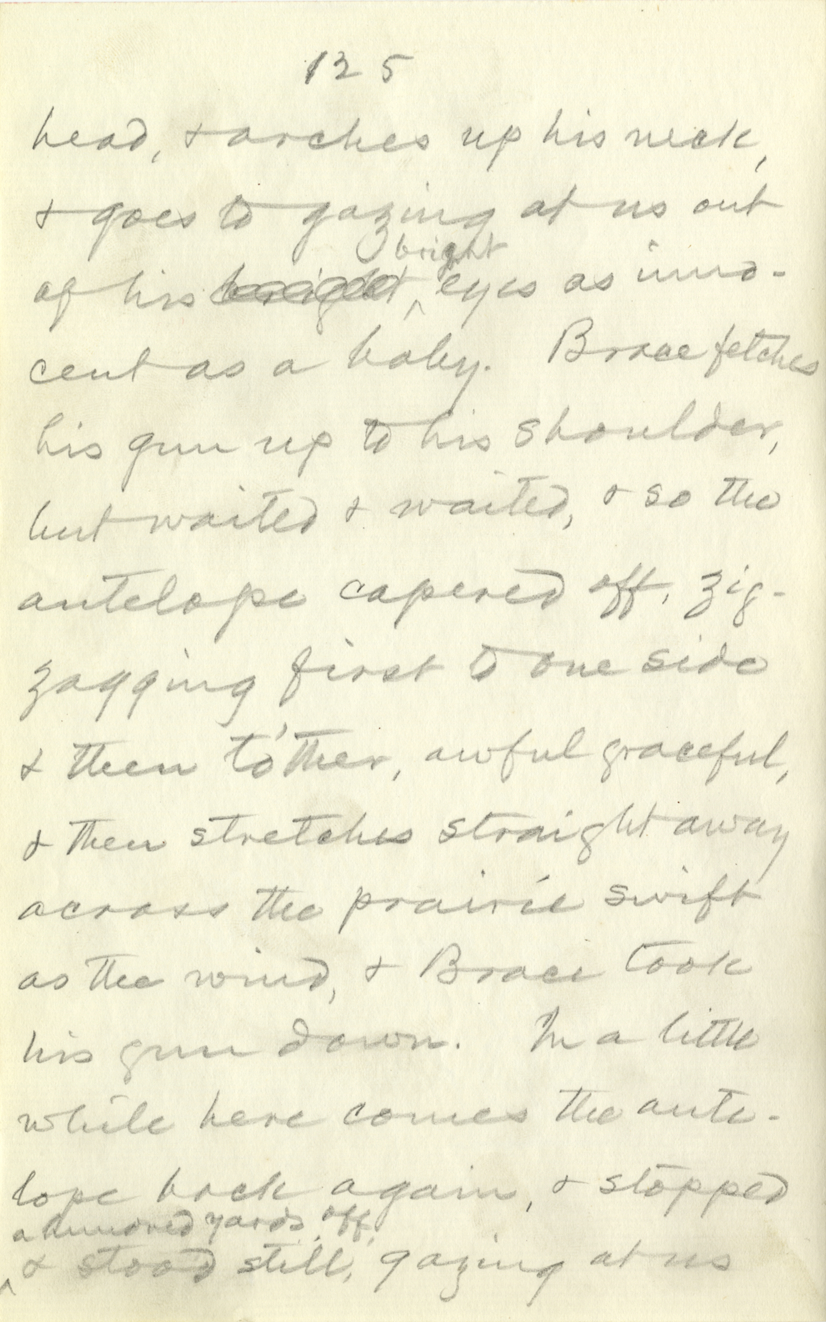 125
head, & arches up his neck,
& goes to gazing at us out
bright
of his bright ^ eyes as inno-
cent as a baby. Brace fetches
his gun up to his shoulder,
but waited & waited, & so the
antelope capered off, zig-
zagging first to one side
& then to'ther, awful graceful,
& then stretches straight away
across the prairie swift
as the wind, & Brace took
his gun down. In a little
while here comes the ante-
lope back again, & stopped
a hundred yards off,
^ & stood still, gazing at us